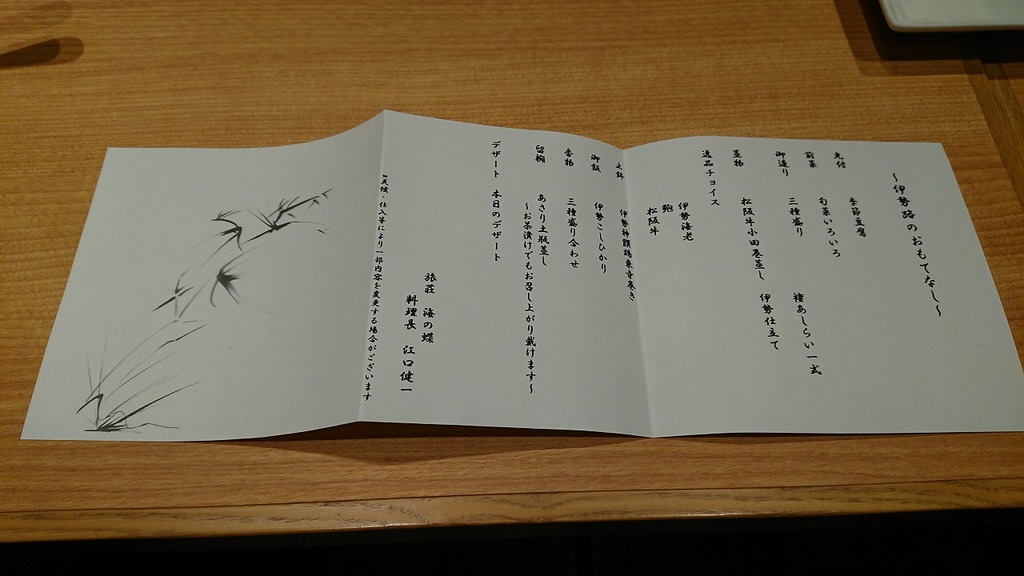 ~伊勢路のおもてなし~
先付 季節豆腐
前菜 旬菜いろいろ
御造り 三種盛り 褄あしらい一式
蒸物 松阪牛小田巻蒸し 伊勢仕立て
逸品チョイス
伊勢海老
鮑
松阪牛
御飯 伊勢こしひかり
香物 三種盛り合わせ
留椀 あさり土瓶蒸し
~お茶漬けでもお召し上がり戴けます~
デザート 本日のデザート
旅荘 海の蝶
料理長 江口健一
※天候・仕入等により一部内容を変更する場合がございます